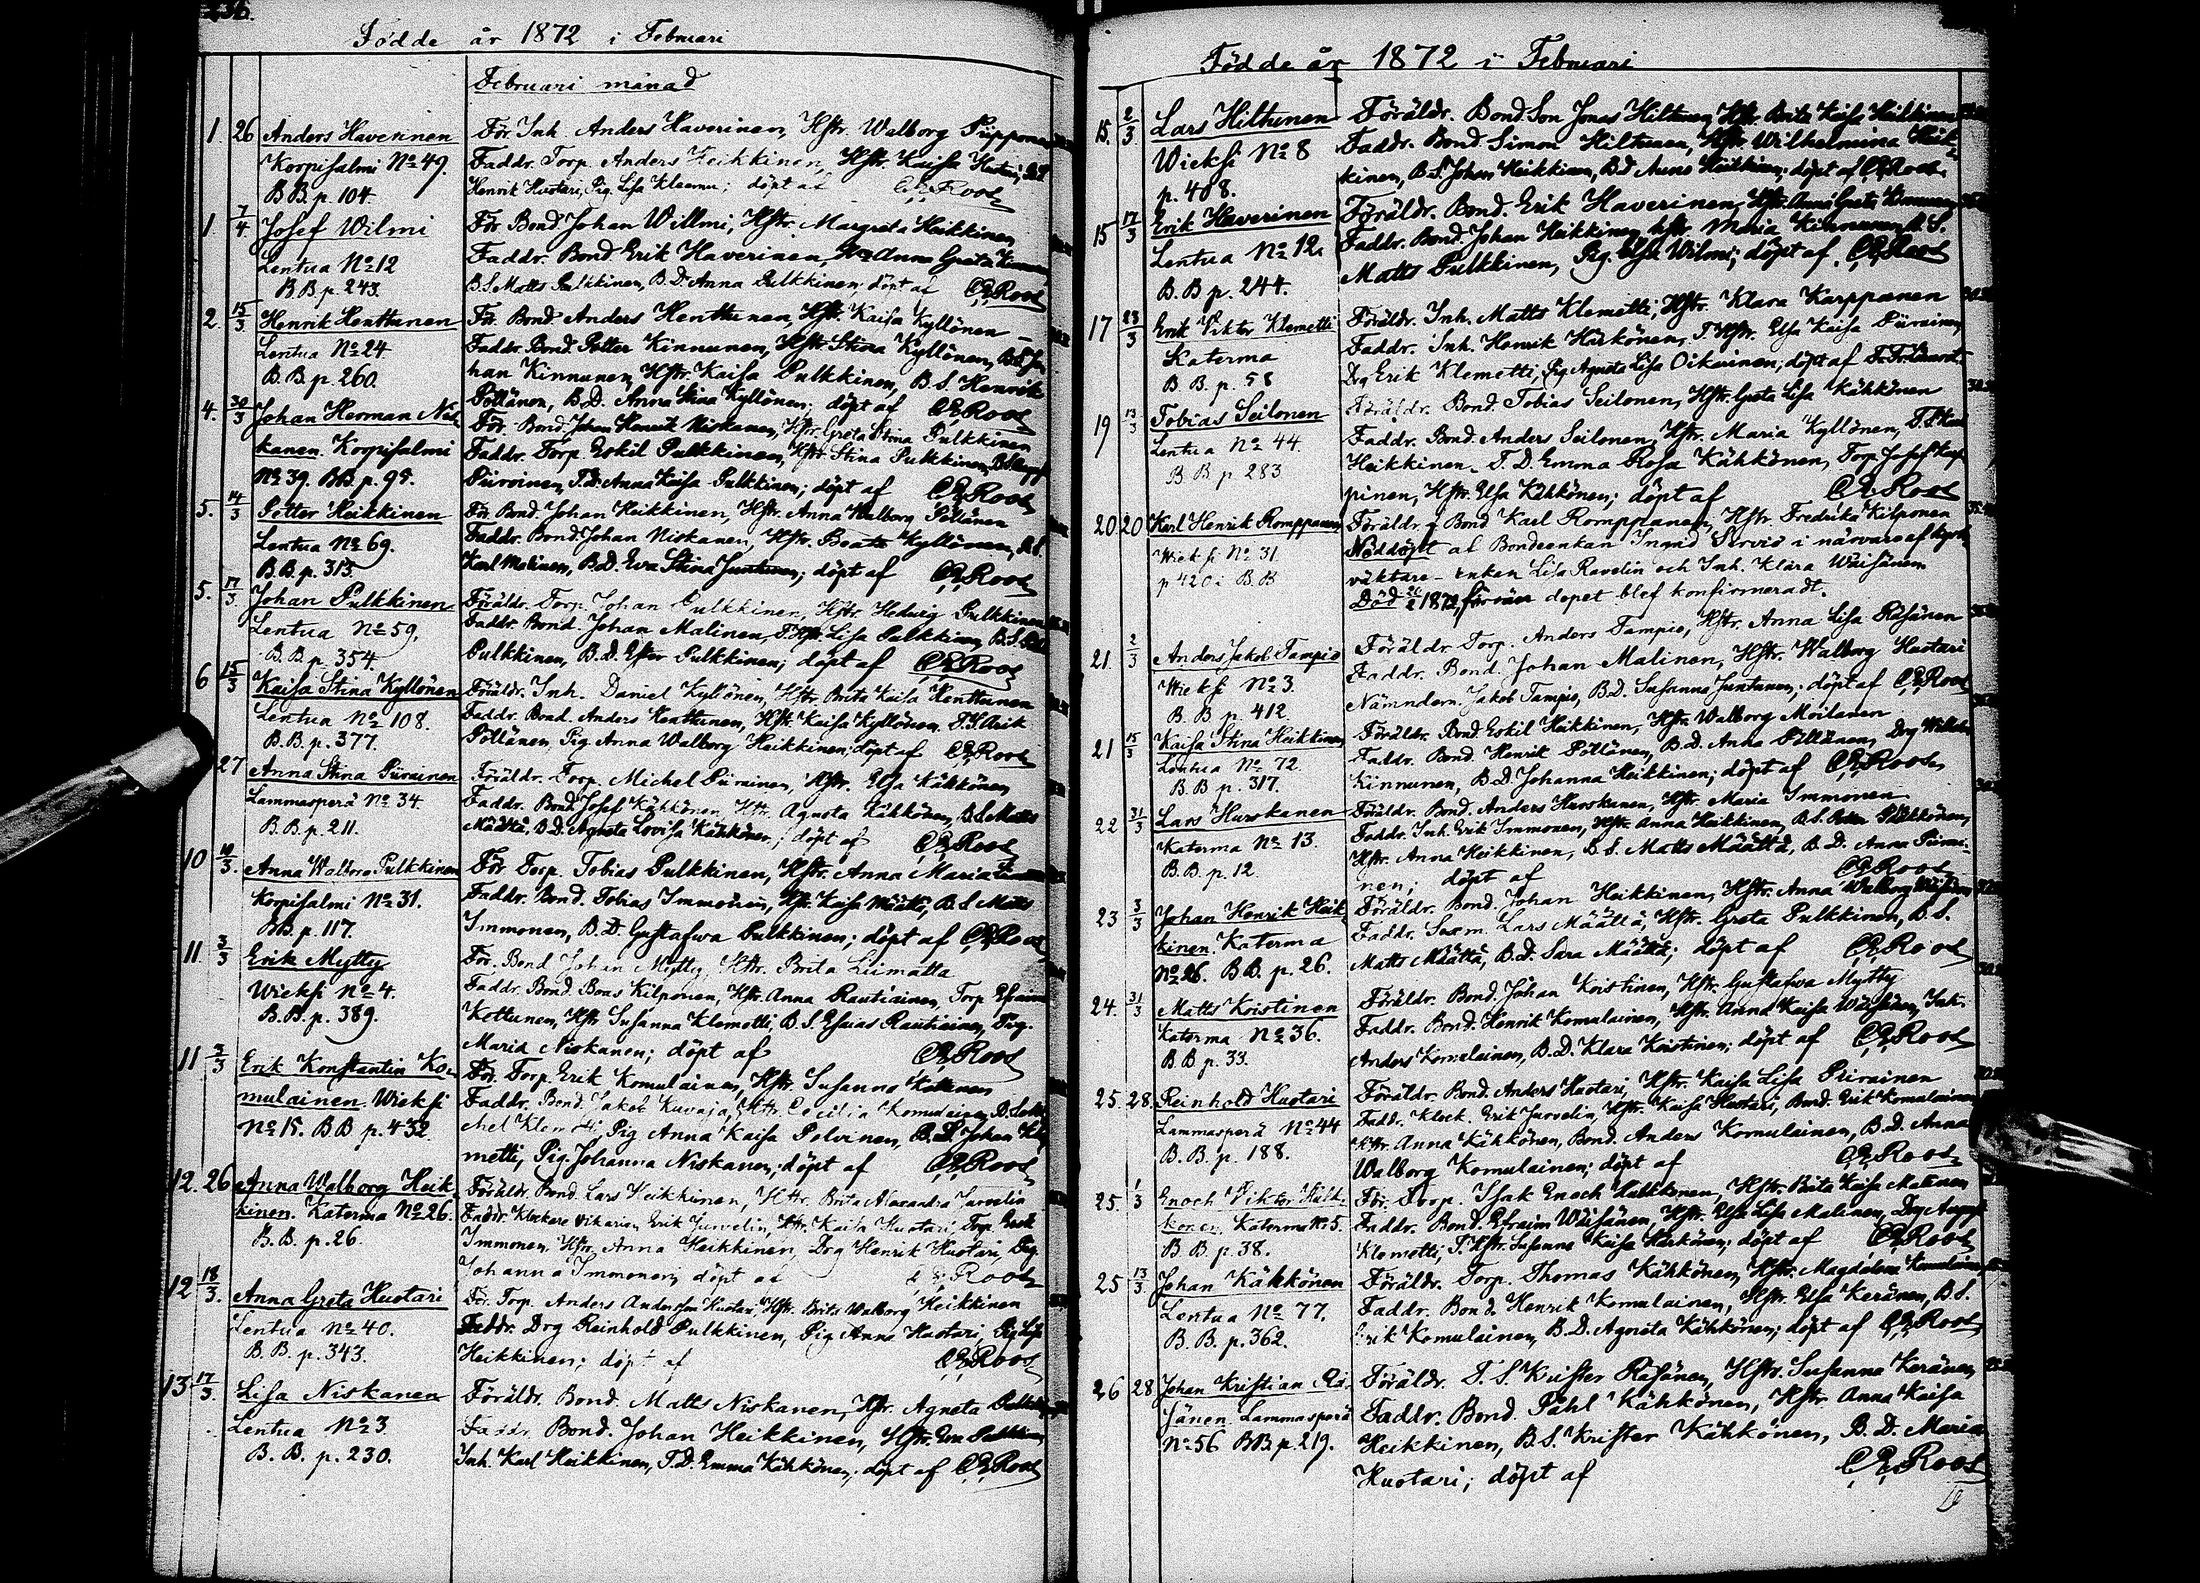 Födde år 1872 i Februari
Februari månad
1 26 Anders Haverinen För. Inh. Anders Haverinen, Hstr. Walborg Piipponen
Korpisalmi No 49. Faddr. Torp. Anders Heikkinen, Hstr. Kaisa Huotari,
B.B. p. 104. Henrik Huotari, Pig. Lisa Klemmi; döpt af C.E. Roos
1 7/4 Josef Wilmi För. Bond. Johan Willmi, Hstr. Margreta Heikkinen
Lentua No 12 Faddr. Bond. Erik Haverinen, Hstr. Anna Greta
B.B. p. 243. B.S. Matts Pulkkinen, B.D. Anna Pulkkinen; döpt af C.E. Roos
2. 15/3 Henrik Henttunen För. Bond. Anders Henttunen, Hstr. Kaisa Kyllönen
Lentua No 24 Faddr. Bond. Petter Kinnunen, Hstr. Stina Kyllönen, B.S. Jo-
B.B. p. 260. han Kinnunen, Hstr. Kaisa Pulkkinen, B.S. Henrik
Pöllänen, B.D. Anna Stina Kyllönen; döpt af C.E. Roos
4. 30/3 Johan Herman Nis- För. Bond. Johan Henrik Niskanen, Hstr. Greta Stina Pulkkinen
kanen. Korpisalmi Faddr. Torp. Eskil Pulkkinen, Hstr. Stina Pulkkinen,
No 39. BB p. 95. Piirainen, T.D. Anna Kaisa Pulkkinen; döpt af C.E. Roos
5. 14/3 Petter Heikkinen För. Bond. Johan Heikkinen, Hstr. Anna Walborg Pöllänen
Lentua No 69. Faddr. Bond. Johan Niskanen, Hstr. Beata Kyllönen, B.S.
B.B. p. 313 Karl Malinen, B.D. Eva Stina Juntunen; döpt af C.E. Roos
5. 17/3 Johan Pulkkinen Föräldr. Torp. Johan Pulkkinen, Hstr. Hedwig Pulkkinen
Lentua No 59. Faddr. Bond. Johan Malinen, T.Hstr. Lisa Pulkkinen, B.S.
B.B. p. 354. Pulkkinen, B.D. Ester Pulkkinen; döpt af C.E. Roos
6 15/3 Kaisa Stina Kyllönen Föräldr. Inh. Daniel Kyllönen, Hstr. Brita Kaisa Henttunen
Lentua No 108. Faddr. Bond. Anders Henttunen, Hstr. Kaisa Kyllönen,
B.B. p. 377. Pöllänen, Pig. Anna Walborg Heikkinen; döpt af C.E. Roos
27 Anna Stina Piirainen Föräldr. Torp. Michel Piirainen, Hstr. Elsa Kähkönen
Lammasperä No 34. Faddr. Bond. Josef Kähkönen, Hstr. Agneta Kähkönen, B.S. Matts
B.B. p. 211. Määttä, B.D. Agneta Lovisa Kähkönen; döpt af C.E. Roos
10 10/3. Anna Walborg Pulkkinen För. Torp. Tobias Pulkkinen, Hstr. Anna Maria
Korpisalmi No 31. Faddr. Bond. Tobias Immonen, Hstr. Kaisa Määttä, B.S. Matts
BB. p. 117. Immonen, B.D. Gustafwa Pulkkinen; döpt af C.E. Roos
11 3/3 Erik Mylly För. Bond. Johan Mylly, Hstr. Brita Liimatta
Wieksi No 4. Faddr. Bond. Boas Kilponen, Hstr. Anna Rautiainen, Torp. Efraim
B.B. p. 389. Kottunen, Hstr. Susanna Klemetti, B.S. Esaias Rautiainen, Pig.
Maria Niskanen; döpt af C.E. Roos
11 3/3 Erik Konstantin Ko- För. Torp. Erik Komulainen, Hstr. Susanna Kettunen
mulainen. Wieksi Faddr. Bond. Jakob Kuvaja, Hstr. Cecilia Komulainen,
No 15. BB p. 432. chel Klemetti, Pig. Anna Kaisa Polvinen, B.S. Johan Kle-
metti, Pig. Johanna Niskanen; döpt af C.E. Roos
12. 26 Anna Walborg Heik- Föräldr. Bond. Lars Heikkinen, Hstr. Brita Alexandra Jarvelin
kinen. Katerma No 26. Faddr. Klockare vikarien Erik Jarvelin, Hstr. Kaisa Huotari, Torp. Erik
B.B. p. 26. Immonen, Hstr. Anna Heikkinen, Drg Henrik Huotari, Pig.
Johanna Immonen; döpt af C.E. Roos
12 18/3. Anna Greta Huotari För. Torp. Anders Andersson Huotari, Hstr. Brita Walborg Heikkinen
Lentua No 40. Faddr. Drg Reinhold Pulkkinen, Pig Anna Huotari, Pig Lisa
B.B. p. 343. Heikkinen; döpt af C.E. Roos
13 17/3. Lisa Niskanen Föräldr. Bond. Matts Niskanen, Hstr. Agneta
Lentua No 3 Faddr. Bond. Johan Heikkinen, Hstr. Eva Pulkkinen
B.B. p. 230. Inh. Karl Heikkinen, T.D. Emma Kähkönen; döpt af C.E. Roos
Födde år 1872 i Februari
15. 2/3 Lars Hiltunen Föräldr. Bond.Son Jonas Hiltunen, Hstr. Brita Kaisa Heikkinen
Wieksi No 8 Faddr. Bond. Simon Hiltunen, Hstr. Wilhelmina Heik-
p. 408. kinen, B.S. Johan Heikkinen, B.D. Anna Heikkinen; döpt af C.E. Roos
15 17/3 Erik Haverinen Föräldr. Bond. Erik Haverinen, Hstr. Anna Greta Kinnunen
Lentua No 12. Faddr. Bond. Johan Heikkinen, hstr. Maria Kinnunen, B.S.
B.B p. 244. Matts Pulkkinen, Pig. Elsa Wilmi; döpt af C.E. Roos
17 23/3 Erik Viktor Klemetti Föräldr. Inh. Matts Klemetti, Hstr. Klara Karppanen
Katerma Faddr. Inh. Henrik Härkönen, T.Hstr. Elsa Kaisa Piirainen,
B B. p. 58 Drg Erik Klemetti, Pig Agneta Lisa Oikarinen; döpt af
19 13/3 Tobias Seilonen Föräldr. Bond. Tobias Seilonen, Hstr. Greta Lisa Kähkönen
Lentua No 44. Faddr. Bond. Anders Seilonen, Hstr. Maria Kyllönen,
B B. p. 283 Heikkinen. T.D. Emma Rosa Kähkönen, Torp. Josef Kar-
pinen, Hstr. Elsa Kähkönen; döpt af C.E. Roos
20 20 Karl Henrik Romppanen Föräldr. Bond Karl Romppanen, Hstr. Fredrika Kilponen
Wieksi No 31 Nöddöpt af Bondeenkan Ingrid Servio i närvaro af kyrk-
p 420 i B.B väktare-enkan Lisa Ravelin och Inh. Klara Wäisänen
Död 20/2 1872 förrän dopet blef konfirmeradt.
21. 2/3 Anders Jakob Tampio Föräldr. Torp. Anders Tampio, Hstr. Anna Lisa Räsänen
Wieksi No 3. Faddr. Bond. Johan Malinen, Hstr. Walborg Huotari
B. B p. 412. Nämndem. Jakob Tampio, B.D. Susanna Juntunen; döpt af C.E. Roos
21 15/3 Kaisa Stina Heikkinen Föräldr. Bond Eskil Heikkinen, Hstr. Walborg Moilanen
Lentua No 72. Faddr. Bond. Henrik Pöllänen, B.D. Anna Pöllänen, Drg Wilhelm
B B p. 317. Kinnunen, B.D. Johanna Heikkinen; döpt af C.E. Roos
22 31/3 Lars Hurskanen Föräldr. Bond. Anders Hurskanen, Hstr. Maria Immonen
Katerma No 13. Faddr. Inh. Erik Immonen, Hstr. Anna Heikkinen, B.S. Petter
B.B. p. 12. Hstr. Anna Heikkinen, B.S. Matts Määttä, B.D. Anna Piirai-
nen; döpt af C.E. Roos
23 3/3 Johan Henrik Heik- Föräldr. Bond. Johan Heikkinen, Hstr. Anna Walborg Wäisänen
kinen. Katerma Faddr. Svåm. Lars Määttä, Hstr. Greta Pulkkinen, B.S.
No 26. B.B. p. 26. Matts Määttä, B.D. Sara Määttä; döpt af C.E. Roos
24. 31/3 Matts Kristinen Föräldr. Bond. Johan Kristinen, Hstr. Gustafwa Mylly
Katerma No 36. Faddr. Bond. Henrik Komulainen, Hstr. Anna Kaisa Wäisänen, Inh.
B B p. 33. Anders Komulainen, B.D. Klara Kristinen; döpt af C.E. Roos
25. 28. Reinhold Huotari Föräldr. Bond. Anders Huotari, Hstr. Kaisa Lisa Piirainen
Lammasperä No 44 Fadd. Klock. Erik Jarvelin, Hstr. Kaisa Huotari, Bond. Erik Komulainen
B. B. p. 188. Hstr. Anna Kähkönen, Bond. Anders Komulainen, B.D. Anna
Walborg Komulainen; döpt af C.E. Roos
25. 1/3 Enoch Viktor Hulk- För. Torp. Isak Enoch Hulkkonen, Hstr. Brita Kaisa Malinen
konen. Katerma No 5. Faddr. Bond. Efraim Wäisänen, Hstr. Elsa Lisa Malinen, Drg August
B B p. 38. Klemetti, T.Hstr. Susanna Kaisa Härkönen; döpt af C.E. Roos
25 13/3. Johan Kähkönen Föräldr. Torp. Thomas Kähkönen, Hstr. Magdalena Komulainen
Lentua No 77. Faddr. Bond. Henrik Komulainen, Hstr. Elsa Keränen, B.S.
B. B. p. 362. Erik Komulainen, B.D. Agneta Kähkönen; döpt af C.E. Roos
26 28 Johan Kristian Rä- Föräldr. T.S. Krister Räsänen, Hstr. Susanna Keränen
sänen. Lammasperä Faddr. Bond. Påhl Kähkönen, Hstr. Anna Kaisa
No 56 BB. p. 219. Heikkinen, B.S. Krister Kähkönen, B.D. Maria
Huotari; döpt af C.E. Roos